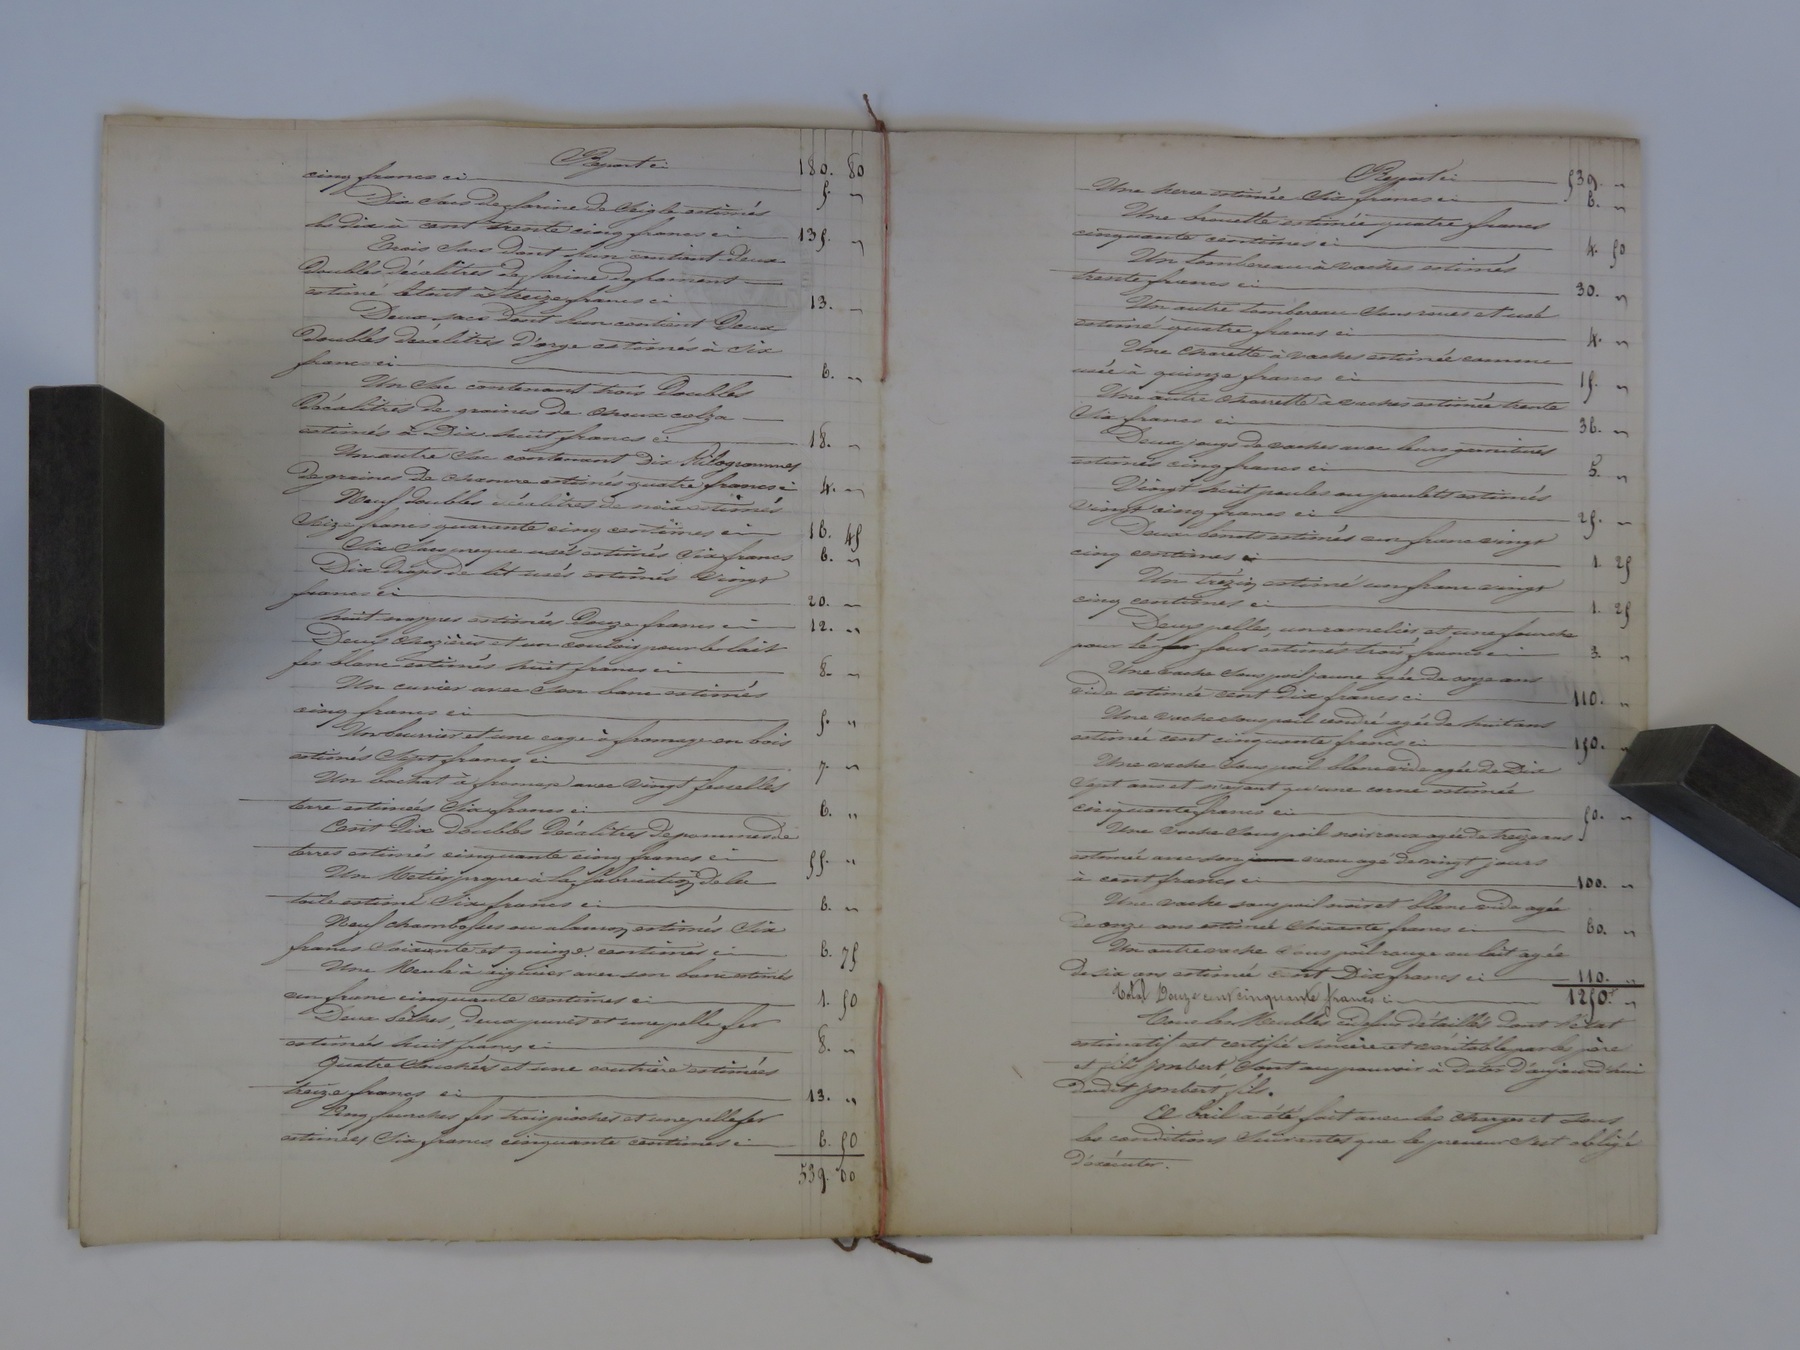 Report ci 180. 80
cinq francs ci 5. "
Dix sacs de farine de seigle estimés
les dix à cent trente cinq francs ci 135. "
Trois sacs dont l'un contient deux
Doubles décalitres de farine de froment
estimé le tout à treize francs ci 13. "
Deux sacs dont l'un contient Deux
Doubles décalitres d'orge estimés à six
francs ci 6. "
Un sac contenant trois Doubles
Décalitres de graines de choux colza
estimés à Dix huit francs ci 18. "
Un autre sac contenant Dix Kilogrammes
de graines de chanvre estimés quatre francs ci 4. "
Neuf doubles décalitres de noix estimés
Seize francs quarante cinq centimes ci 16. 45
Six sacs usés estimés six francs 6. "
Dix Draps de lit usés estimés vingt
francs ci 20. "
huit nappes estimées Douze francs ci 12. "
Deux et un couloir pour le lait
fer blanc estimés huit francs ci 8. "
Un cuvier avec son banc estimés
cinq francs ci 5. "
Un beurrier et une cage à fromage en bois
estimés sept francs ci 7. "
Un bachat à fromage avec vingt faisselles
terre estimées Six francs ci 6. "
Cent Dix doubles Décalitres de pommes de
terres estimés cinquante cinq francs ci 55. "
Un Métier propre à la fabrication de la
toile estimé Six francs ci 6. "
Neuf ou estimés Six
francs soixante et quinze centimes ci 6. 75
Une Meule à aiguiser avec son banc estimés
un franc cinquante centimes ci 1. 50
Deux bêches, deux et une pelle fer
estimés huit francs ci 8. "
Quatre et une estimées
treize francs ci 13. "
Cinq fourches fer trois pioches et une pelle fer
estimées Six francs cinquante centimes ci 6. 50
539. 00
Report ci 539. "
Une herse estimée Six francs ci 6. "
Une brouette estimée quatre francs
cinquante centimes ci 4. 50
Un tombereau à vaches estimés
trente francs ci 30. "
Un autre tombereau sans roues et usé
estimé quatre francs ci 4. "
Une charette à vaches estimée comme
usée à quinze francs ci 15. "
Une autre charrette à vaches estimée trente
Six francs ci 36. "
Deux jougs de vaches avec leurs garnitures
estimés cinq francs ci 5. "
Vingt huit poules ou poulets estimés
vingt cinq francs ci 25. "
Deux estimés un franc vingt
cinq centimes ci 1. 25
Un estimé un franc vingt
cinq centimes ci 1. 25
Deux pelles, un et une fourche
pour le four estimés trois francs ci 3. "
Une vache sous poil jaune agée de onze ans
vide estimée cent Dix francs ci 110. "
Une vache sous poil cendré agée de huit ans
estimée cent cinquante francs ci 150. "
Une vache sous poil blanc vide agée de Dix
sept ans et n'ayant qu'une corne estimée
cinquante francs ci 50. "
Une vache sous poil noir roux agée de treize ans
estimée avec son veau agé de vingt jours
à cent francs ci 100. "
Une vache sous poil noir et blanc vide agée
de onze ans estimée soixante francs ci 60. "
Un autre vache sous poil rouge au lait agée
de six ans estimée cent Dix francs ci 110. "
Total Douze cent cinquante francs ci 1250. "
Tous les Meubles ci-dessus détaillés dont l'état
estimatif est certifié sincère et véritable par les père
et fils Jonbert sont au pouvoir à dater d'aujourd'hui
Dudit Jonbert fils.
Ce bail a été fait avec les charges et sous
les conditions suivantes que le preneur s'est obligé
D'exécuter.